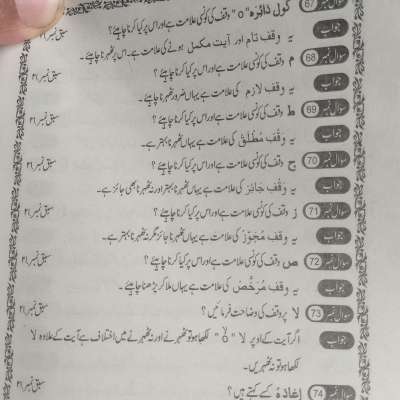 سوال نمبر 67 گول دائرہ "O" وقف کی کونسی علامت ہے اور اس پر کیا کرنا چاہیئے؟ سبق نمبر ۲۱
جواب یہ وقف تام اور آیت مکمل ہونے کی علامت ہے۔ اس پر ٹھہرنا چاہیئے۔
سوال نمبر 68 م وقف کی کونسی علامت ہے اور اس پر کیا کرنا چاہیئے؟ سبق نمبر ۲۱
جواب یہ وقف لازم کی علامت ہے یہاں ضرور ٹھہرنا چاہیئے۔
سوال نمبر 69 ط وقف کی کونسی علامت ہے اور اس پر کیا کرنا چاہیئے؟ سبق نمبر ۲۱
جواب یہ وقف مُطلَق کی علامت ہے یہاں ٹھہرنا بہتر ہے۔
سوال نمبر 70 ج وقف کی کونسی علامت ہے اور اس پر کیا کرنا چاہیئے؟ سبق نمبر ۲۱
جواب یہ وَقْفِ جَائِز کی علامت ہے یہاں ٹھہرنا بہتر اور نہ ٹھہرنا بھی جائز ہے۔
سوال نمبر 71 ز وقف کی کونسی علامت ہے اور اس پر کیا کرنا چاہیئے؟ سبق نمبر ۲۱
جواب یہ وقف مُجَوَّز کی علامت ہے یہاں ٹھہرنا جائز مگر نہ ٹھہرنا بہتر ہے۔
سوال نمبر 72 ص وقف کی کونسی علامت ہے اور اس پر کیا کرنا چاہیئے؟ سبق نمبر ۲۱
جواب یہ وقف مُرَخَّص کی علامت ہے یہاں ملا کر پڑھنا چاہیئے۔
سوال نمبر 73 لا پر وقف کی وضاحت فرمائیں؟ سبق نمبر ۲۱
جواب اگر آیت کے اوپر لا "O" لکھا ہو تو ٹھہرنے اور نہ ٹھہرنے میں اختلاف ہے آیت کے علاوہ لا
لکھا ہو تو نہ ٹھہریں۔
سوال نمبر 74 اِعَادَہ کسے کہتے ہیں؟ سبق نمبر ۲۱